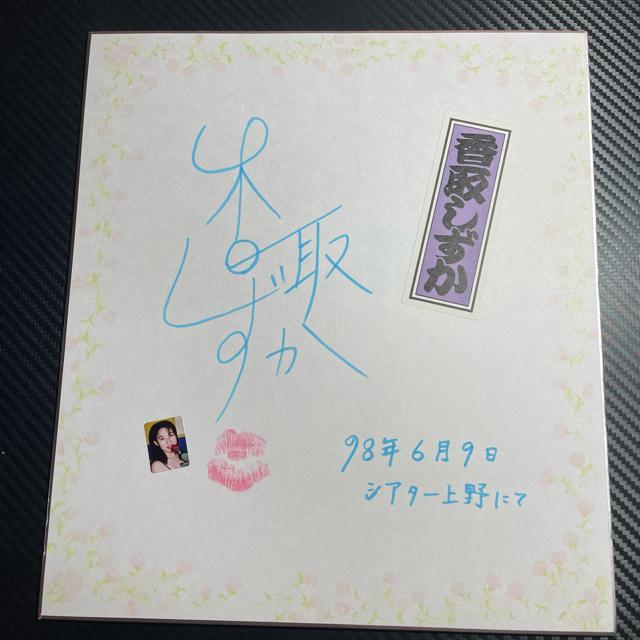 香取しずか
香取しずか
98年6月9日
シアター上野にて